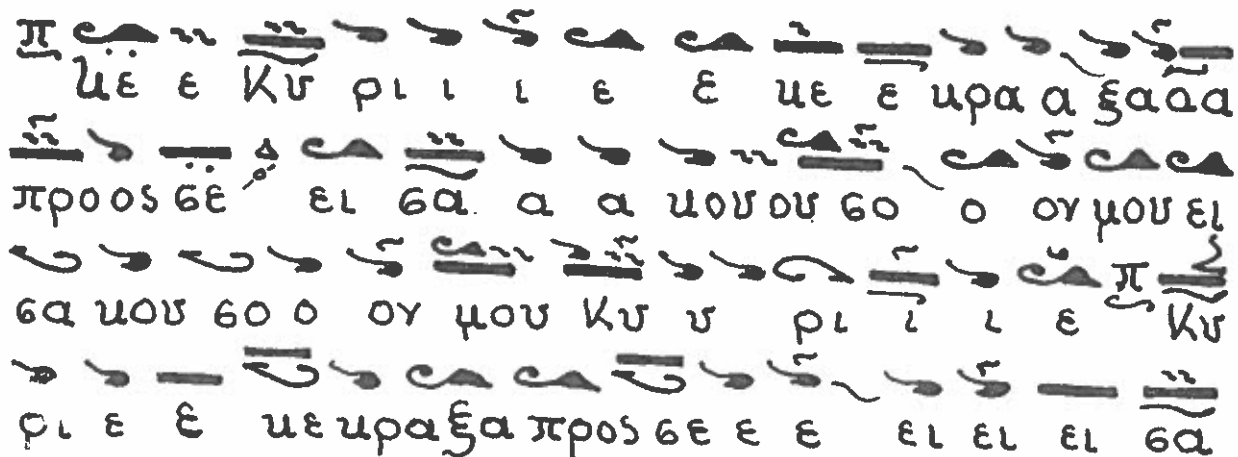 Κε ε Κυ ρι ι ι ε ε κε ε κρα α ξα α α
προ ος σε ει σα α α κου ου σο ο ον μου ει
σα κου σο ο ον μου Κυ υ ρι ι ι ε Κυ
ρι ε ε κε κρα ξα προς σε ε ε ει ει ει σα